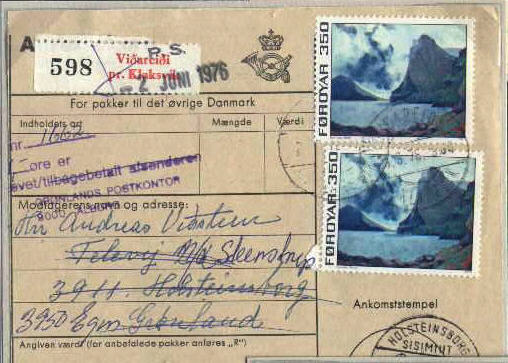 A
P.S.
598
Viðareiði
pr. Klaksvík
2 JUNI 1976
For pakker til det øvrige Danmark
Indholdets art
Mængde
Værdi
FØROYAR 350
nr. 1662
øre er
evet/tilbagebetalt afsenderen
GRØNLANDS POSTKONTOR
9000 AALBORG
Modtagerens navn og adresse:
FØROYAR 350
Hr Andreas
Televej Steenstrup
3911. Holsteinsborg
3950 Egm Grønland
Ankomststempel
HOLSTEINSBORG
SISIMIUT
Angiven værdi (for anbefalede pakker anføres "R")